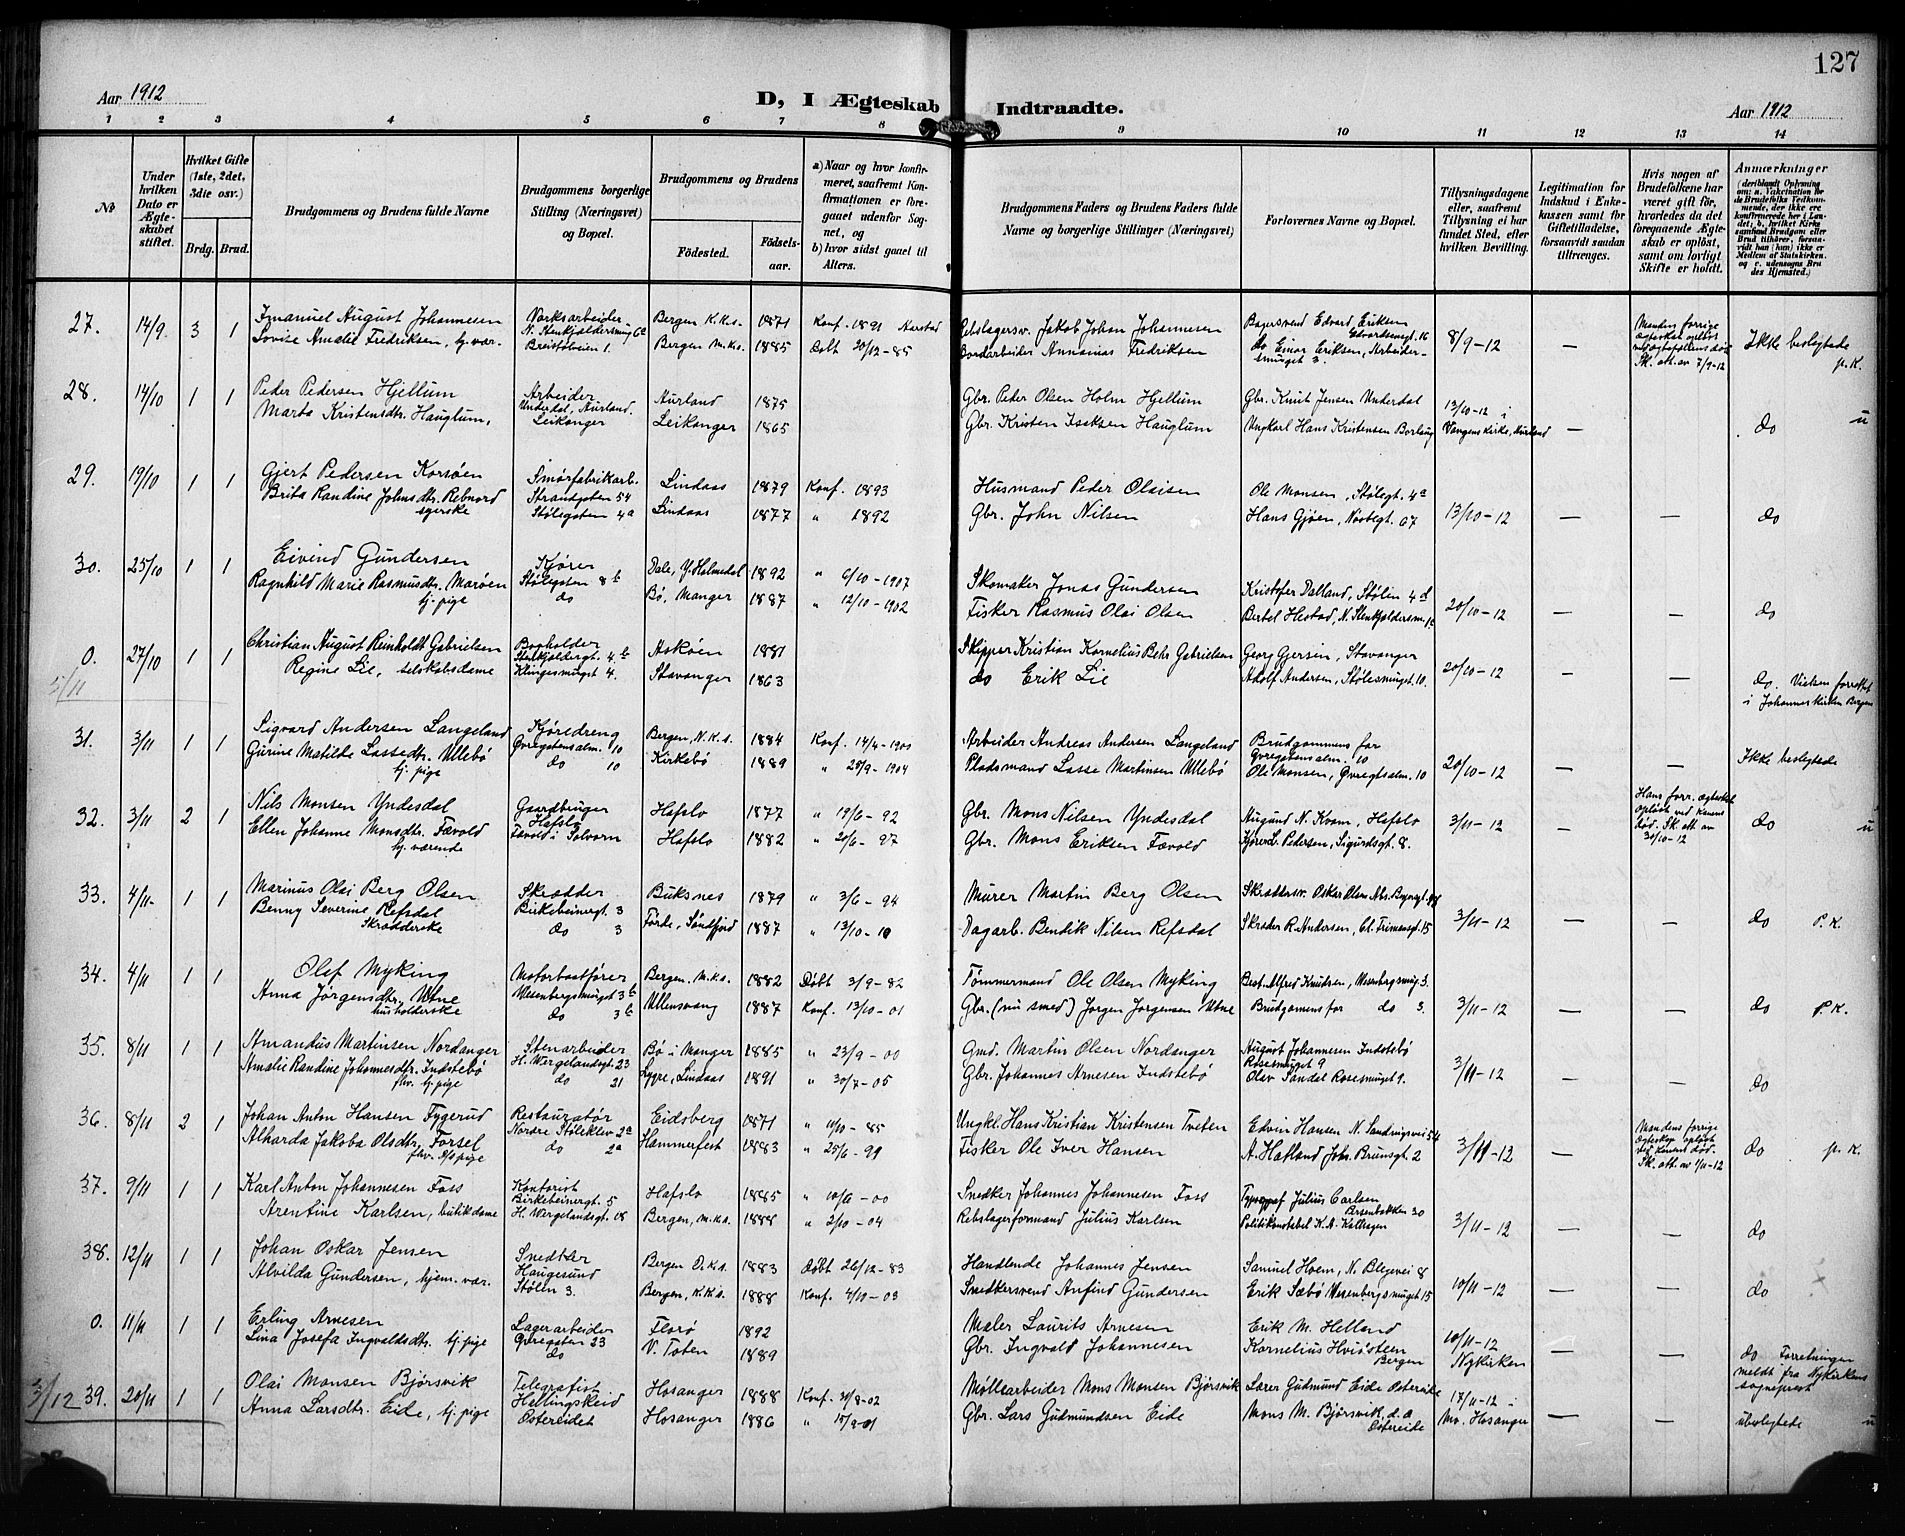 127
Aar 1912
D, I Ægteskab Indtraadte.
Aar 1912
1 2 3 4 5 6 7 8 9 10 11 12 13 14
No
Under hvilken Dato er Ægteskabet stiftet.
Hvilket Gifte (1ste, 2det, 3die osv.)
Brdg. Brud.
Brudgommens og Brudens fulde Navne
Brudgommens borgerlige Stilling (Næringsvei) og Bopæl.
Brudgommens og Brudens
Fødested.
Fødselsaar.
a) Naar og hvor konfirmeret, saafremt Konfirmationen er foregaaet udenfor Sognet, og
b) hvor sidst gaaet til Alters.
Brudgommens Faders og Brudens Faders fulde Navne og borgerlige Stillinger (Næringsvei)
Forlovernes Navne og Bopæl.
Tillysningsdagene eller, saafremt Tillysning ei har fundet Sted, efter hvilken Bevilling.
Legitimation for Indskud i Enkekassen samt for Giftetilladelse, forsaavidt saadan tiltrænges.
Hvis nogen af Brudefolkene har været gift før, hvorledes da det foregaaende Ægteskab er opløst, samt om lovligt Skifte er holdt.
Anmærkninger
27. 14/9 3 1 Imanuel August Johannesen Verksarbeider N. Stenkjeldersmug 6a Bergen K.k.s. 1871 Konf. 1891 Aarstad Rebslagersv. Jakob Johan Johannesen Bagersvend Edvard Eriksen Edvardsensgt. 16 8/9-12 — Mandens forrige ægteskab opløst ved ægtefællens død Sk. att. av 7/9-12 Ikke beslegtede
Lovise Amalie Fredriksen, hj. vær. Breistølveien 1. Bergen m.k.s. 1885 Døbt 30/12-85 Bordarbeider Annanias Fredriksen do Einar Eriksen, Arbeidersmuget 3. p.K.
28. 14/10 1 1 Peder Pedersen Hjellum Arbeider Underdal, Aurland. Aurland 1875 Gbr. Peder Olsen Holm Hjellum Gbr. Knut Jensen Underdal 13/10-12 i Vangens kirke, Aurland — do u
Marta Kristensdtr. Hauglum, Leikanger Leikanger 1865 Gbr. Kristen Isaksen Hauglum Ungkarl Hans Kristensen Borlaug
29. 19/10 1 1 Gjert Pedersen Korsøen Smørfabrikarb. Strandgaten 54 Lindaas 1879 Konf. 1893 Husmand Peder Olaisen Ole Monsen, Stølegt. 4a 13/10-12 — — do
Brita Randine Johnsdtr. Rebnord Stølegaten 4a Lindaas 1877 " 1892 Gbr. John Nilsen Hans Gjøen, Nøstegt. 67
30. 25/10 1 1 Eivind Gundersen Kjører Stølegaten 8b Dale, Y. Holmedal 1892 " 6/10-1907 Skomaker Jonas Gundersen Kristofer Dalland, Stølen 4d 20/10-12 — — do
Ragnhild Marie Rasmusdtr. Marøen tj. pige do Bø, Manger 1887 " 12/10-1902 Fisker Rasmus Olai Olsen Bertel Hestad, N. Stenkjeldersm. 1c
0. 27/10 1 1 Christian August Reinholdt Gabrielsen Bogholder Stenkjeldergt. 4b Askøen 1881 Skipper Kristian Kornelius Behr Gabrielsen Georg Gjersen, Stavanger 20/10-12 — — do. Vielsen forrettet i Johanneskirken Bergen
5/11 Regine Lie, selskabsdame Klingesmuget 4. Stavanger 1863 do Erik Lie Adolf Andersen, Stølesmuget 10.
31. 3/11 1 1 Sigvard Andersen Langeland Kjøredreng Øvregatensalm. 10 Bergen, N.K.s. 1884 Konf. 14/4-1900 Arbeider Andreas Andersen Langeland Brudgommens far Øvregatensalm. 10 20/10-12 — — Ikke beslegtede
Gurine Matilde Lassedtr. Ullebø tj. pige do 10 Kirkebø 1889 " 28/9-1904 Pladsmand Lasse Martinsen Ullebø Ole Monsen, Øvregtsalm. 10
32. 3/11 2 1 Nils Monsen Yndesdal Gaardbruger Hafslo Hafslo 1877 " 19/6-92 Gbr. Mons Nilsen Yndesdal Augund N. Kvam, Hafslo 3/11-12 — Hans forr. ægteskab opløst ved konens død. Sk. att. av 30/10-12 do u
Ellen Johanne Monsdtr. Fævold hj. værende Fævold i Solvorn Hafslo 1882 " 20/6-97 Gbr. Mons Eriksen Fævold Kjører L. Pedersen, Sigurdsgt. 8.
33. 4/11- 1 1 Marinus Olai Berg Olsen Skrædder Birkebeinergt. 3 Buksnes 1879 " 3/6-94 Murer Martin Berg Olsen Skræddersv. Oskar Olsen 3/11-12 — — do P.K.
Benny Severine Refsdal Skrædderske do 3 Førde, Søndfjord 1887 " 13/10-10 Dagarb. Bendik Nilsen Refsdal Skræder R. Andersen, Cl. Frimansgt. 15
34. 4/11 1 1 Olaf Myking Motorbaatfører Wesenbergsmuget 3b Bergen, m.k.s. 1882 Døbt 3/9-82 Tømmermand Ole Olsen Myking Best. Alfred Knutsen, Wesenbergsmug 3. 3/11-12 — — do P.K.
Anna Jørgensdtr. Utne husholderske do 3b Ullensvang 1887 Konf. 13/10-01 Gbr. (nu smed) Jørgen Jørgensen Utne Brudgomens far do 3.
35. 8/11 1 1 Amandus Martinsen Nordanger Stenarbeider H. Wergelandsgt. 23 Bø i Manger 1885 " 23/9-00 Gmd. Martin Olsen Nordanger August Johannesen Indstebø Rosesmuget 9 3/11-12 — — do
Amalie Randine Johannesdtr. Indstebø fhv. tj. pige do 21 Lygre, Lindaas 1891 " 30/7-05 Gbr. Johannes Arnesen Indstebø Olav Sandal Rosesmuget 9.
36. 8/11 2 1 Johan Anton Hansen Fygerud Restauratør Nordre Støleklev 2a Eidsberg 1871 " 11/10-85 Ungkl. Hans Kristian Kristensen Tveten Edvin Hansen N. Sandvigsvei 54 3/11-12 — Mandens forrige ægteskap opløst ved konens død. Sk. att. av 1/11-12 do p.K.
Alharda Jakoba Olsdtr. Forsel fhv. pige do 2a Hammerfest 1883 " 25/6-99 Fisker Ole Iver Hansen A. Hafland Joh. Brunsgt. 2
37. 9/11 1 1 Karl Anton Johannesen Foss Kontorist Birkebeinergt. 5 Hafslo 1885 " 10/6-00 Snedker Johannes Johannesen Foss Typograf Julius Carlsen 30 3/11-12 — — do
Arentine Karlsen, butikdame H. Wergelandsgt. 18 Bergen, m.k.s. 1888 " 2/10-04 Rebslagerformand Julius Karlsen Politikonstabel K. A. Kellesen
38. 12/11 1 1 Johan Oskar Jensen Snedker Haugesund Bergen D.k.s. 1883 Døbt 26/12-83 Handlende Johannes Jensen Samuel Hoem, N. Blegevei 8 10/11-12 — — do
Alvilda Gundersen, hjem. vær. Stølen 3. Bergen, K.K.s. 1888 Konf. 4/10-03 Snedkersvend Anfind Gundersen Erik Sæbø Wesenbergsmuget 15
0. 11/11 1 1 Erling Arnesen Lagerarbeider Øvregaten 23 Florø 1892 Maler Laurits Arnesen Erik M. Helland 10/11-12 Nykirken — — do Forretningen meldt fra Nykirkens sogneprest
Lina Josefa Ingvaldsdtr. tj. pige do V. Toten 1889 Gbr. Ingvald Johannesen Kornelius Hvidsteen Bergen
3/12 39. 20/11 1 1 Olai Monsen Bjørsvik Telegrafist Hellingskeid Hosanger 1888 Konf. 31/8-02 Møllearbeider Mons Monsen Bjørsvik Lærer Gudmund Eide Ostereide 17/11-12 i Mo. Hosanger — — ubeslegtede u
Anna Larsdtr. Eide, tj. pige Ostereidet Hosanger 1886 " 15/9-01 Gbr. Lars Gudmundsen Eide Mons M. Bjørsvik, d.a Ostereide